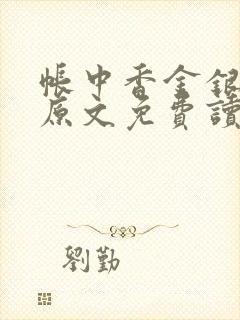 帳中香金銀
原文免費讀
劉勤